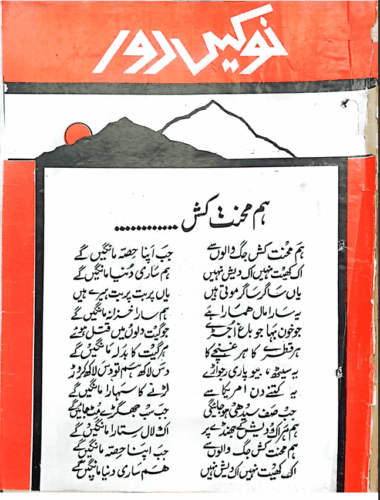 نوکیں دور
ہم محنت کش ............
ہم محنت کش جگ والوں سے جب اپنا حصہ مانگیں گے
اک کھیت نہیں اک دیش نہیں ہم ساری دنیا مانگیں گے
یاں ساگر ساگر موتی ہیں یاں پربت پربت ہیرے ہیں
یہ سارا مال ہمارا ہے ہم سارا خزانہ مانگیں گے
جو خون بہا جو باغ اجڑے جو گیت دلوں میں قتل ہوئے
ہر قطرے کا ہر غنچے کا ہر گیت کا بدلہ مانگیں گے
یہ سیٹھ، بیوپاری رجواڑے دس لاکھ ہم تو دس لاکھ کروڑ
یہ کتنے دن امریکا سے لڑنے کا سہارا مانگیں گے
جب صف سیدھی ہو جائیگی جب سب جھگڑے مٹ جائیں گے
ہم ہر اک دیش کے جھنڈے پر اک لال ستارا مانگیں گے
ہم محنت کش جگ والوں سے جب اپنا حصہ مانگیں گے
اک کھیت نہیں اک دیش نہیں ہم ساری دنیا مانگیں گے